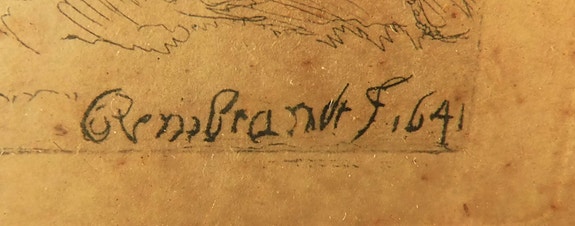 Rembrandt F. 1641